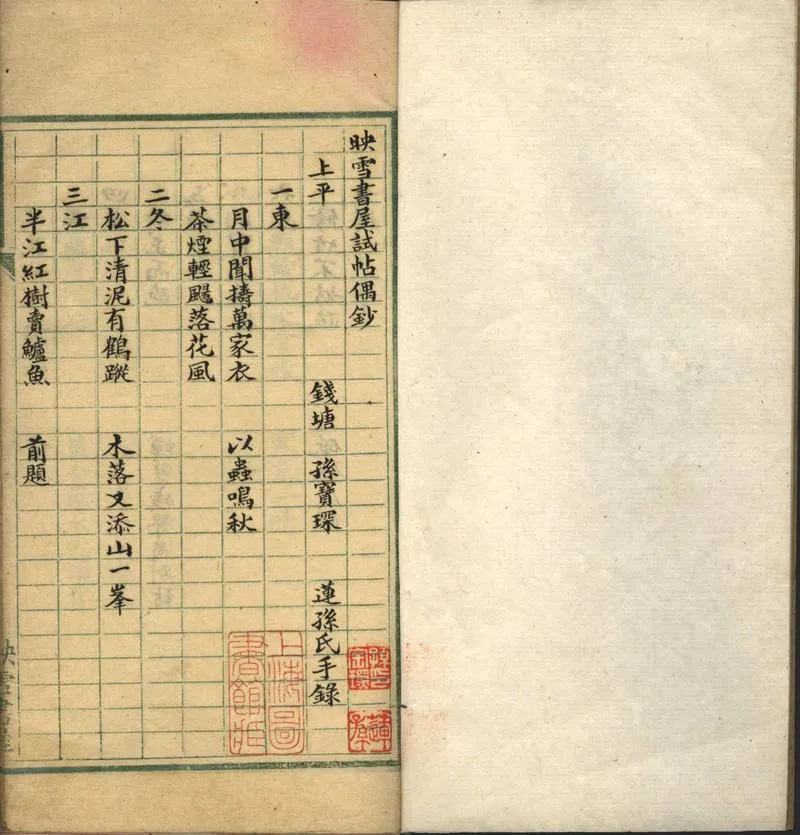 映雪書屋試帖偶鈔
上平　錢塘　孫寶琛　蓮孫氏手錄
一東
月中聞擣萬家衣　以蟲鳴秋
茶煙輕颺落花風
二冬
松下清泥有鶴蹤　木落又添山一峯
三江
半江紅樹賣鱸魚　前題
映雪書屋
上海圖書館藏